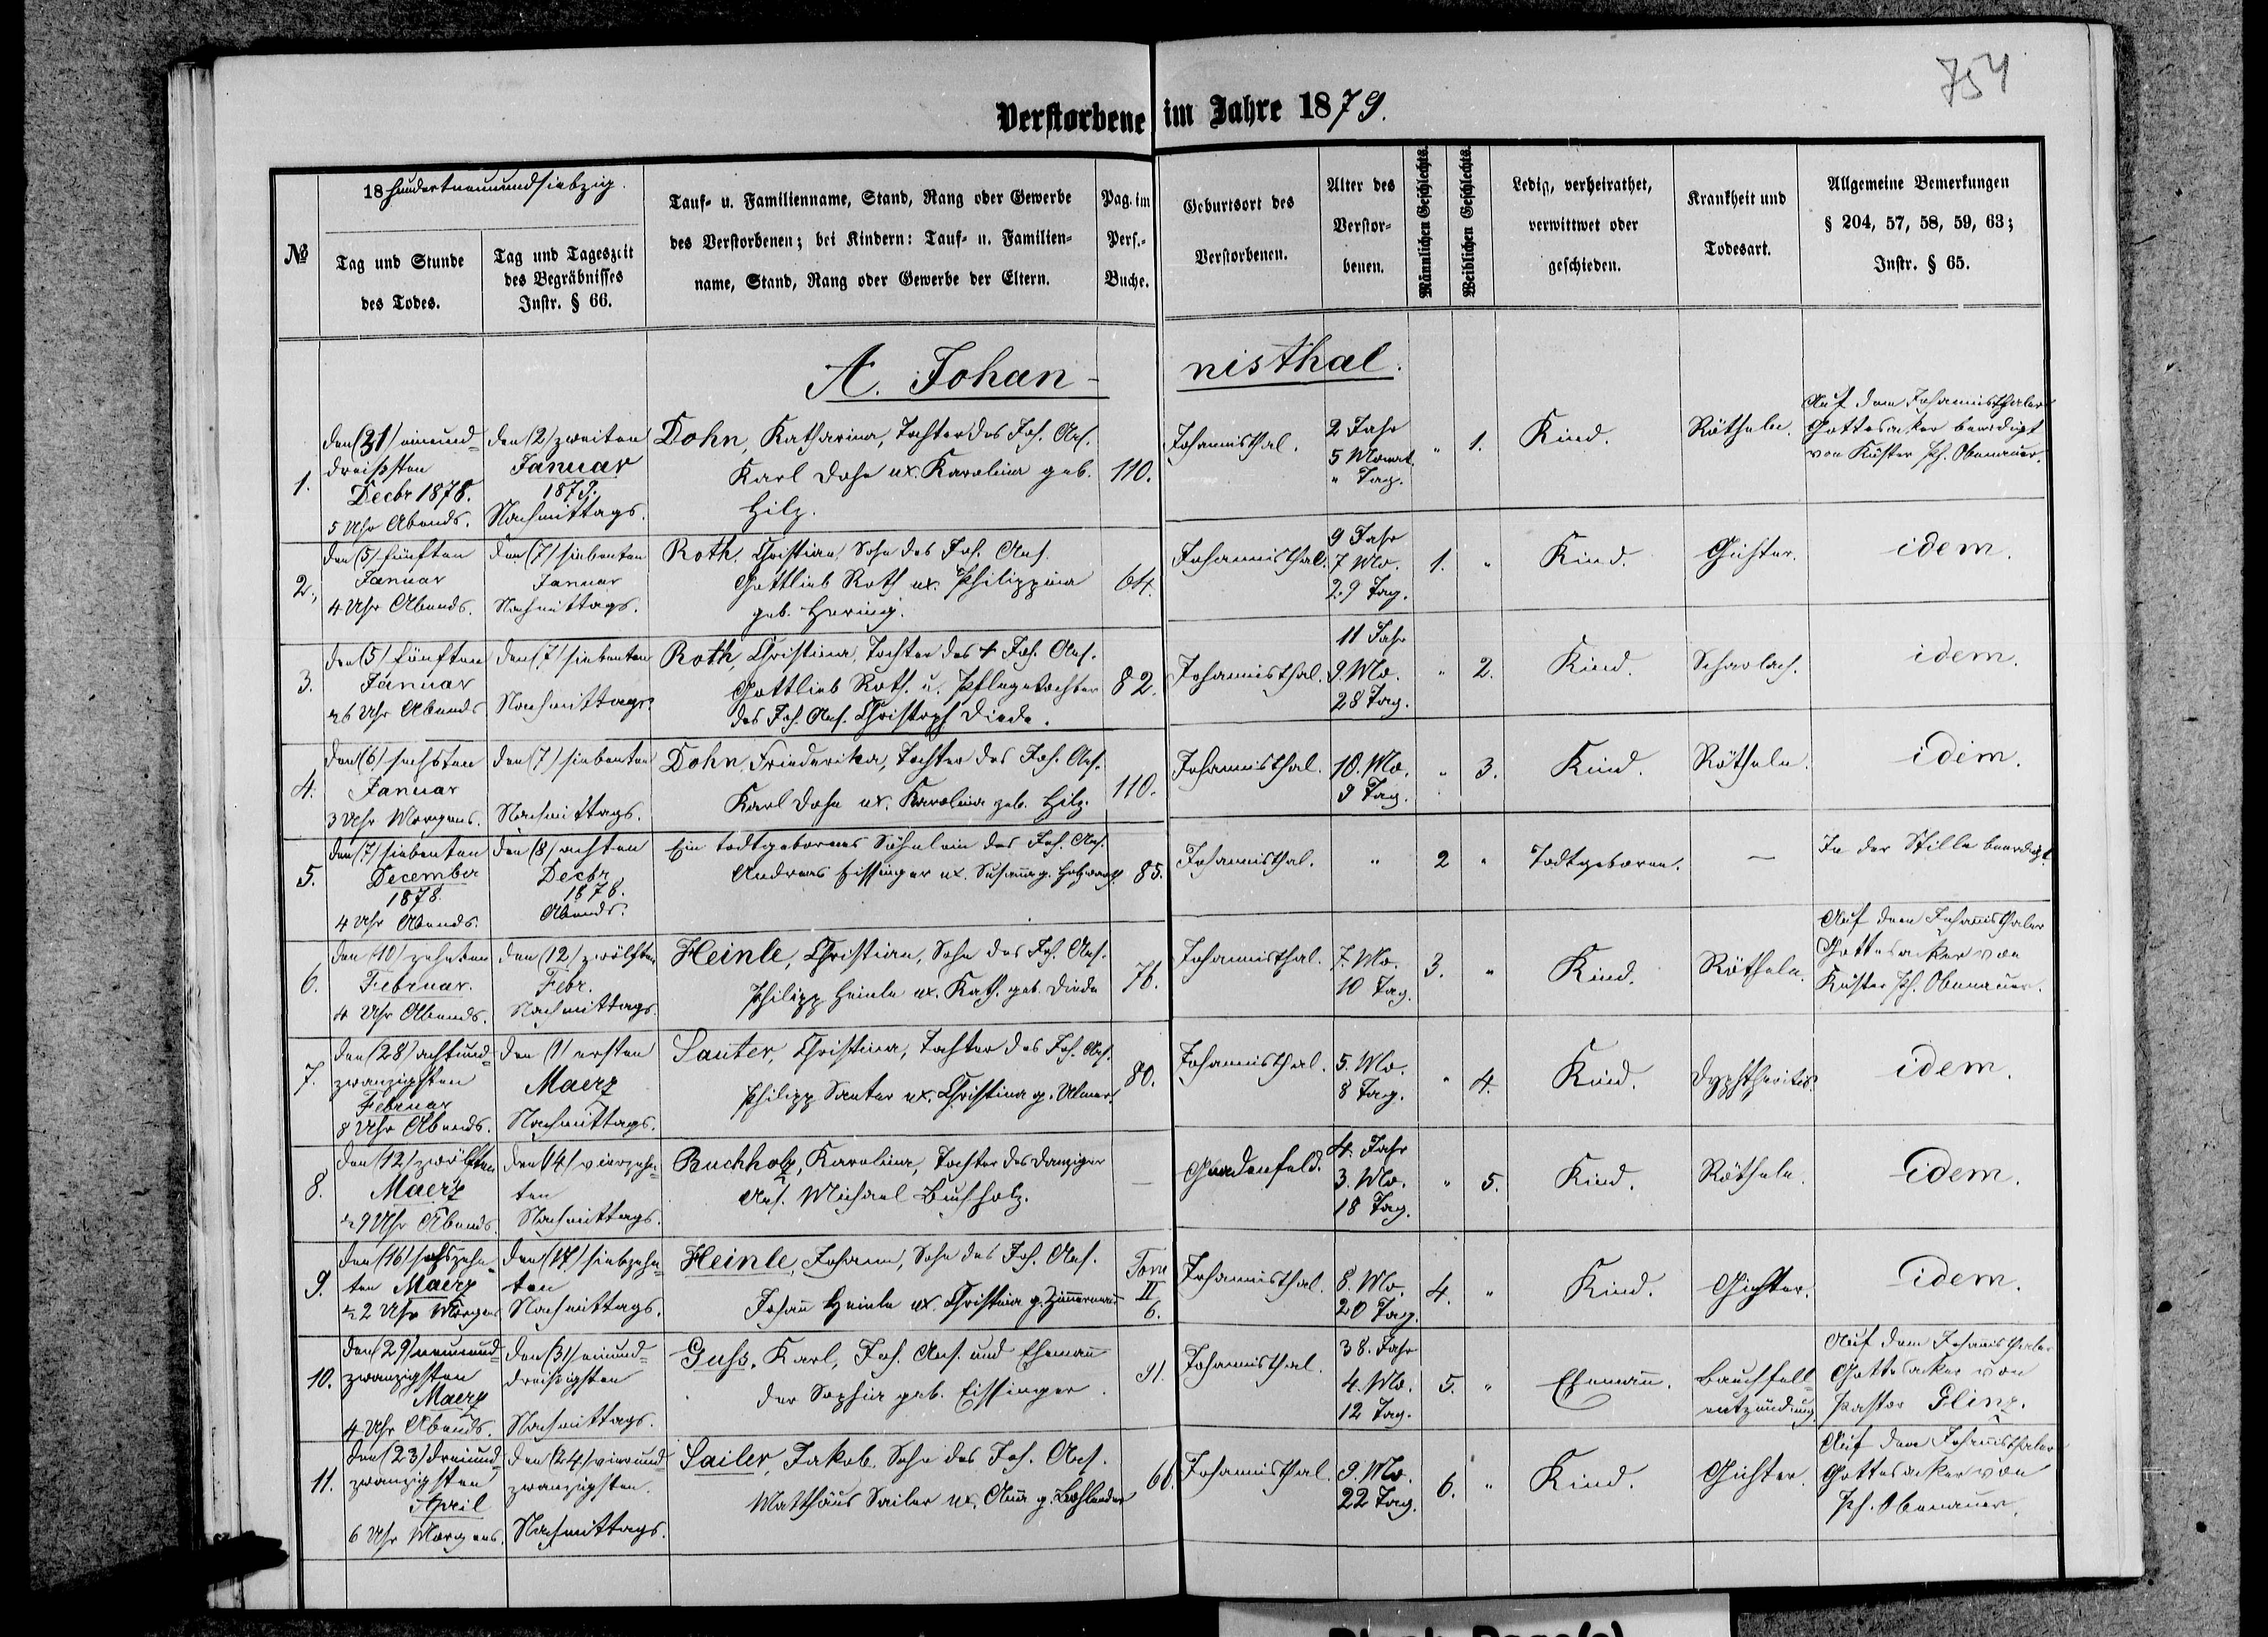 754
Verstorbene im Jahre 1879.
№
18hundertneunundsiebzig.
Tag und Stunde
des Todes.
Tag und Tageszeit
des Begräbnisses
Instr. § 66.
Tauf- u. Familienname, Stand, Rang oder Gewerbe
des Verstorbenen; bei Kindern: Tauf- u. Familien-
name, Stand, Rang oder Gewerbe der Eltern.
Pag. im
Pers.-
Buche.
Geburtsort des
Verstorbenen.
Alter des
Verstor-
benen.
Männlichen Geschlechts.
Weiblichen Geschlechts.
Ledig, verheirathet,
verwittwet oder
geschieden.
Krankheit und
Todesart.
Allgemeine Bemerkungen
§ 204, 57, 58, 59, 63;
Instr. § 65.
A. Johan-nisthal.
1.
den (31) einund-
dreißsten
Decbr 1878.
5 Uhr Abends.
den (2) zweiten
Januar
1879.
Nachmittags.
Dohn, Katharina, Tochter des Joh. Ans.
Karl Dohn ux. Karolina geb.
Hilz.
110.
Johannisthal.
2 Jahr
5 Monat
" Tag.
"
1.
Kind.
Rötheln.
Auf dem Johannisthaler
Gottesacker beerdigt
von Küster Ph. Obenauer.
2.
den (5) fünften
Januar
4 Uhr Abends.
den (7) siebenten
Januar
Nachmittags.
Roth, Christian, Sohn des Joh. Ans.
Gottlieb Roth ux. Philippina
geb. Hering.
64.
Johannisthal.
9 Jahr
7 Mo.
29 Tag.
1.
"
Kind.
Gichter.
idem.
3.
den (5) fünften
Januar
½6 Uhr Abends
den (7) siebenten
Nachmittags.
Roth, Christina, Tochter des + Joh. Ans.
Gottlieb Roth. u. Pflegetochter
des Joh. Ans. Christoph Diede.
82.
Johannisthal.
11 Jahr
9. Mo.
28 Tag.
"
2.
Kind.
Scharlach.
idem.
4.
den (6) sechsten
Januar
3 Uhr Morgens.
den (7) siebenten
Nachmittags.
Dohn, Friederika, Tochter des Joh. Ans.
Karl Dohn ux. Karolina geb. Hilz.
110.
Johannisthal.
10. Mo.
9 Tag.
"
3.
Kind.
Rötheln.
idem.
5.
den (7) siebenten
December
1878.
4 Uhr Abends.
den (8) achten
Decbr
1878.
Abends.
Ein todtgebornes Söhnlein des Joh. Ans.
Andreas Eissinger ux. Susanna g.
85.
Johannisthal.
"
2
"
Todtgeboren.
—
In der Stille beerdigt.
6.
den (10) zehnten
Februar.
4 Uhr Abends.
den (12) zwölften
Febr.
Nachmittags.
Heinle, Christian, Sohn des Joh. Ans.
Philipp Heinle ux. Kath. geb. Diede
76.
Johannisthal.
7. Mo.
10 Tag.
3.
"
Kind.
Rötheln.
Auf dem Johannisthaler
Gottesacker von
Küster Ph. Obenauer.
7.
den (28) achtund-
zwanzigsten
Februar
8 Uhr Abends.
den (1) ersten
Maerz
Nachmittags.
Sauter, Christina, Tochter des Joh. Ans.
Philipp Sauter ux. Christina g. Ulmer.
80.
Johannisthal.
5. Mo.
8 Tag.
"
4.
Kind.
Dyphtheritis.
idem.
8.
den (12) zwölften
Maerz
½9 Uhr Abends.
den (14) vierzehn-
ten
Nachmittags.
Buchholz, Karolina, Tochter des Danziger
Ans. Michael Buchholz.
—
Gnadenfeld.
4. Jahr
3. Mo.
18 Tag.
"
5.
Kind.
Rötheln.
idem.
9.
den (16) sechszehn-
ten Maerz
½2 Uhr Morgens
den (17) siebzehn-
ten
Nachmittags.
Heinle, Johann, Sohn des Joh. Ans.
Johann Heinle ux. Christina g. Zimmermann
Tom
II
6.
Johannisthal.
8. Mo.
20 Tag.
4.
"
Kind.
Gichter.
idem.
10.
den (29) neunund-
zwanzigsten
Maerz
4 Uhr Abends.
den (31) einund-
dreißigsten
Nachmittags.
Guhs, Karl, Joh. Ans. und Ehemann
der Sophia geb. Eissinger.
91.
Johannisthal.
38. Jahr
4. Mo.
12 Tag.
5.
"
Ehemann.
Bauchfell-
entzündung.
Auf dem Johannisthaler
Gottesacker von
Pastor Glinz.
11.
den (23) dreiund-
zwanzigsten
April
6 Uhr Morgens.
den (24) vierund-
zwanzigsten.
Nachmittags.
Sailer, Jakob, Sohn des Joh. Ans.
Matthäus Sailer ux. Anna g. Bohlender
66.
Johannisthal.
9. Mo.
22 Tag.
6.
"
Kind.
Gichter.
Auf dem Johannisthaler
Gottesacker von
Ph. Obenauer.